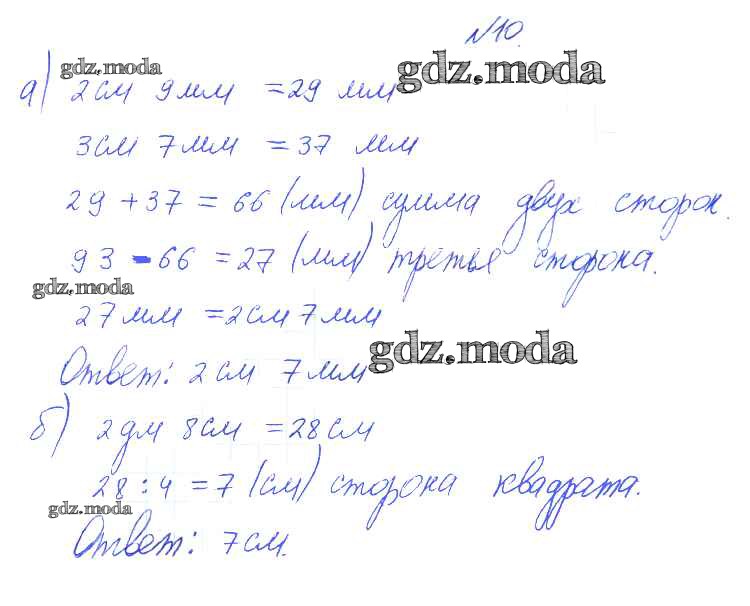 №10.
gdz.moda gdz.moda
а) 2см 9мм = 29 мм
3см 7мм = 37 мм
29 + 37 = 66 (мм) сумма двух сторон.
93 - 66 = 27 (мм) третья сторона.
gdz.moda
27мм = 2см 7мм
gdz.moda
Ответ: 2см 7мм
б) 2дм 8см = 28см
28 : 4 = 7 (см) сторона квадрата.
gdz.moda
Ответ: 7см.